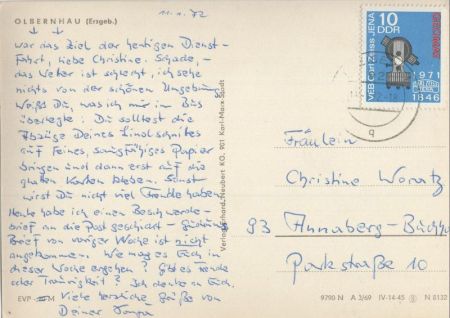 11.1.72
OLBERNHAU (Erzgeb.)
war das Ziel der heutigen Dienst-
fahrt, liebe Christine. Schade, -
das Wetter ist schlecht, ich sehe
nichts von der schönen Umgebung.
Weißt Du, was ich mir im Bus
überlegte: Du solltest die
Abzüge Deines Linolschnittes
auf feines, saugfähiges Papier
bringen und dann erst auf die
glatten Karten kleben. Sonst
wirst Du nicht viel Freude haben.
Heute habe ich einen Beschwerde-
brief an die Post geschickt -
Brief von voriger Woche ist nicht
angekommen. Wie mag es Euch in
dieser Woche ergehen? Gibt es Freude
oder Traurigkeit? Ich denke an Euch.
Viele herzliche Grüße von
Deiner
EVP M
Verlag Erhard Neubert KG, 901 Karl-Marx-Stadt
10
DDR
VEB Carl Zeiss JENA
1971
1846
Fräulein
Christine
93 Annaberg-Buchho
Parkstraße 10
9790 N A 3/69 IV-14-45 N 8132